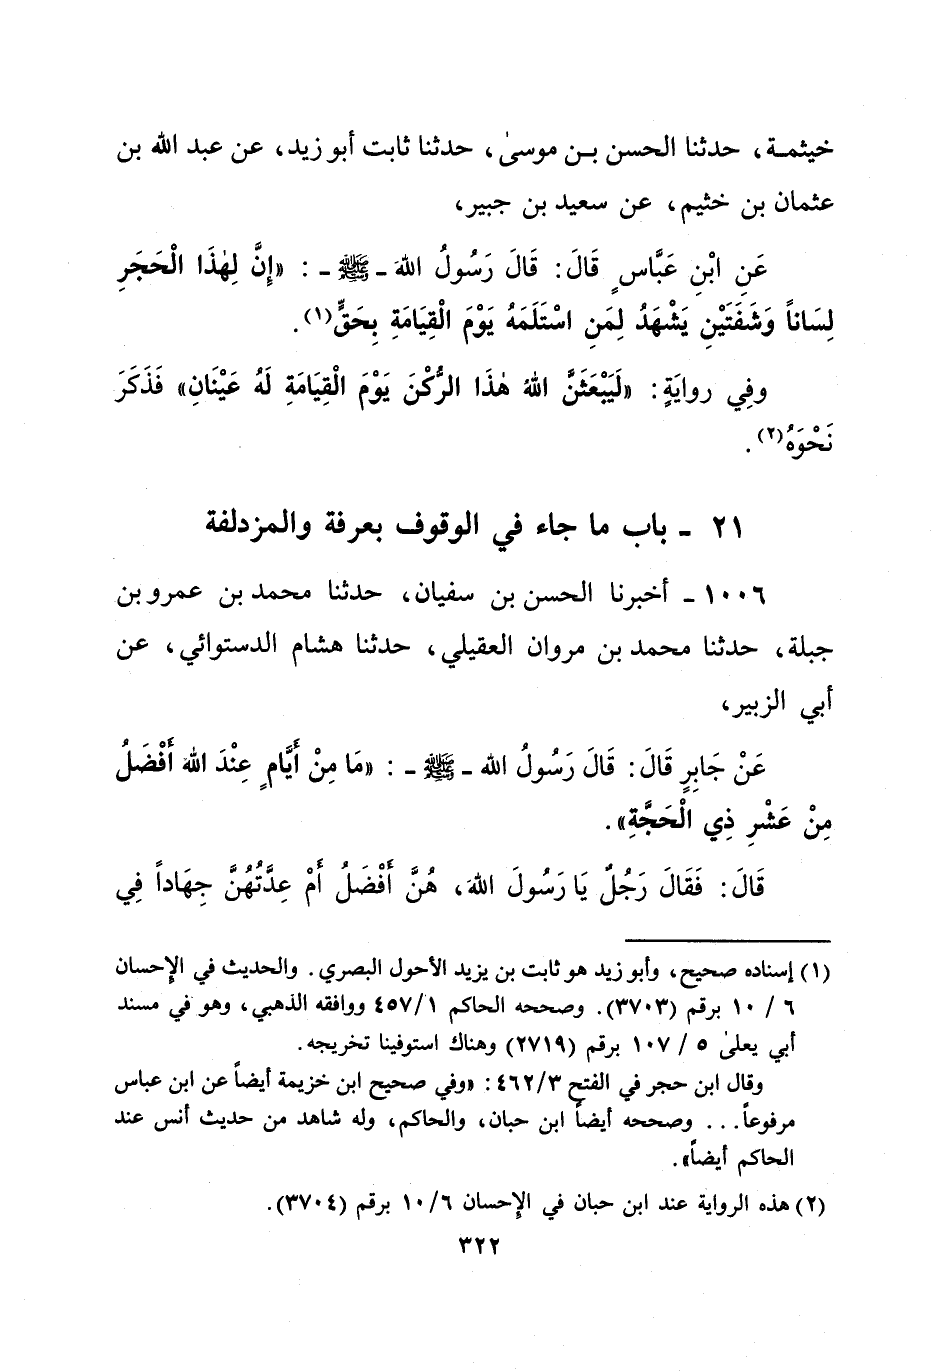 خيثمـة، حدثنا الحسن بـن موسىٰ، حدثنا ثابت أبو زيد، عن عبد الله بن
عثمان بن خثيم، عن سعيد بن جبير،
عَنِ ابْنِ عَبَّاسٍ قَالَ: قَالَ رَسُولُ اللهَ ـ ﷺ ـ : «إِنَّ لِهٰذَا الْحَجَرِ
لِسَاناً وَشَفَتَيْنِ يَشْهَدُ لِمَنِ اسْتَلَمَهُ يَوْمَ الْقِيَامَةِ بِحَقٍّ(١).
وفِي روايَةٍ: «لَيَبْعَثَنَّ اللهُ هٰذَا الرُّكْنَ يَوْمَ الْقِيَامَةِ لَهُ عَيْنَانِ» فَذَكَرَ
نَحْوَهُ(٢).
٢١ ـ باب ما جاء في الوقوف بعرفة والمزدلفة
١٠٠٦ ـ أخبرنا الحسن بن سفيان، حدثنا محمد بن عمرو بن
جبلة، حدثنا محمد بن مروان العقيلي، حدثنا هشام الدستوائي، عن
أبي الزبير،
عَنْ جَابِرٍ قَالَ: قَالَ رَسُولُ الله ـ ﷺ ـ : «مَا مِنْ أَيَّامٍ عِنْدَ اللهَ أَفْضَلُ
مِنْ عَشْرِ ذِي الْحَجَّةِ».
قَالَ: فَقَالَ رَجُلٌ يَا رَسُولَ اللهَ، هُنَّ أَفْضَلُ أَمْ عِدَّتُهُنَّ جِهَاداً فِي
(١) إسناده صحيح، وأبو زيد هو ثابت بن يزيد الأحول البصري. والحديث في الإحسان
٦ / ١٠ برقم (٣٧٠٣). وصححه الحاكم ٤٥٧/١ ووافقه الذهبي، وهو في مسند
أبي يعلىٰ ٥ / ١٠٧ برقم (٢٧١٩) وهناك استوفينا تخريجه.
وقال ابن حجر في الفتح ٤٦٢/٣: «وفي صحيح ابن خزيمة أيضاً عن ابن عباس
مرفوعاً... وصححه أيضاً ابن حبان، والحاكم، وله شاهد من حديث أنس عند
الحاكم أيضاً».
(٢) هذه الرواية عند ابن حبان في الإحسان ١٠/٦ برقم (٣٧٠٤).
٣٢٢